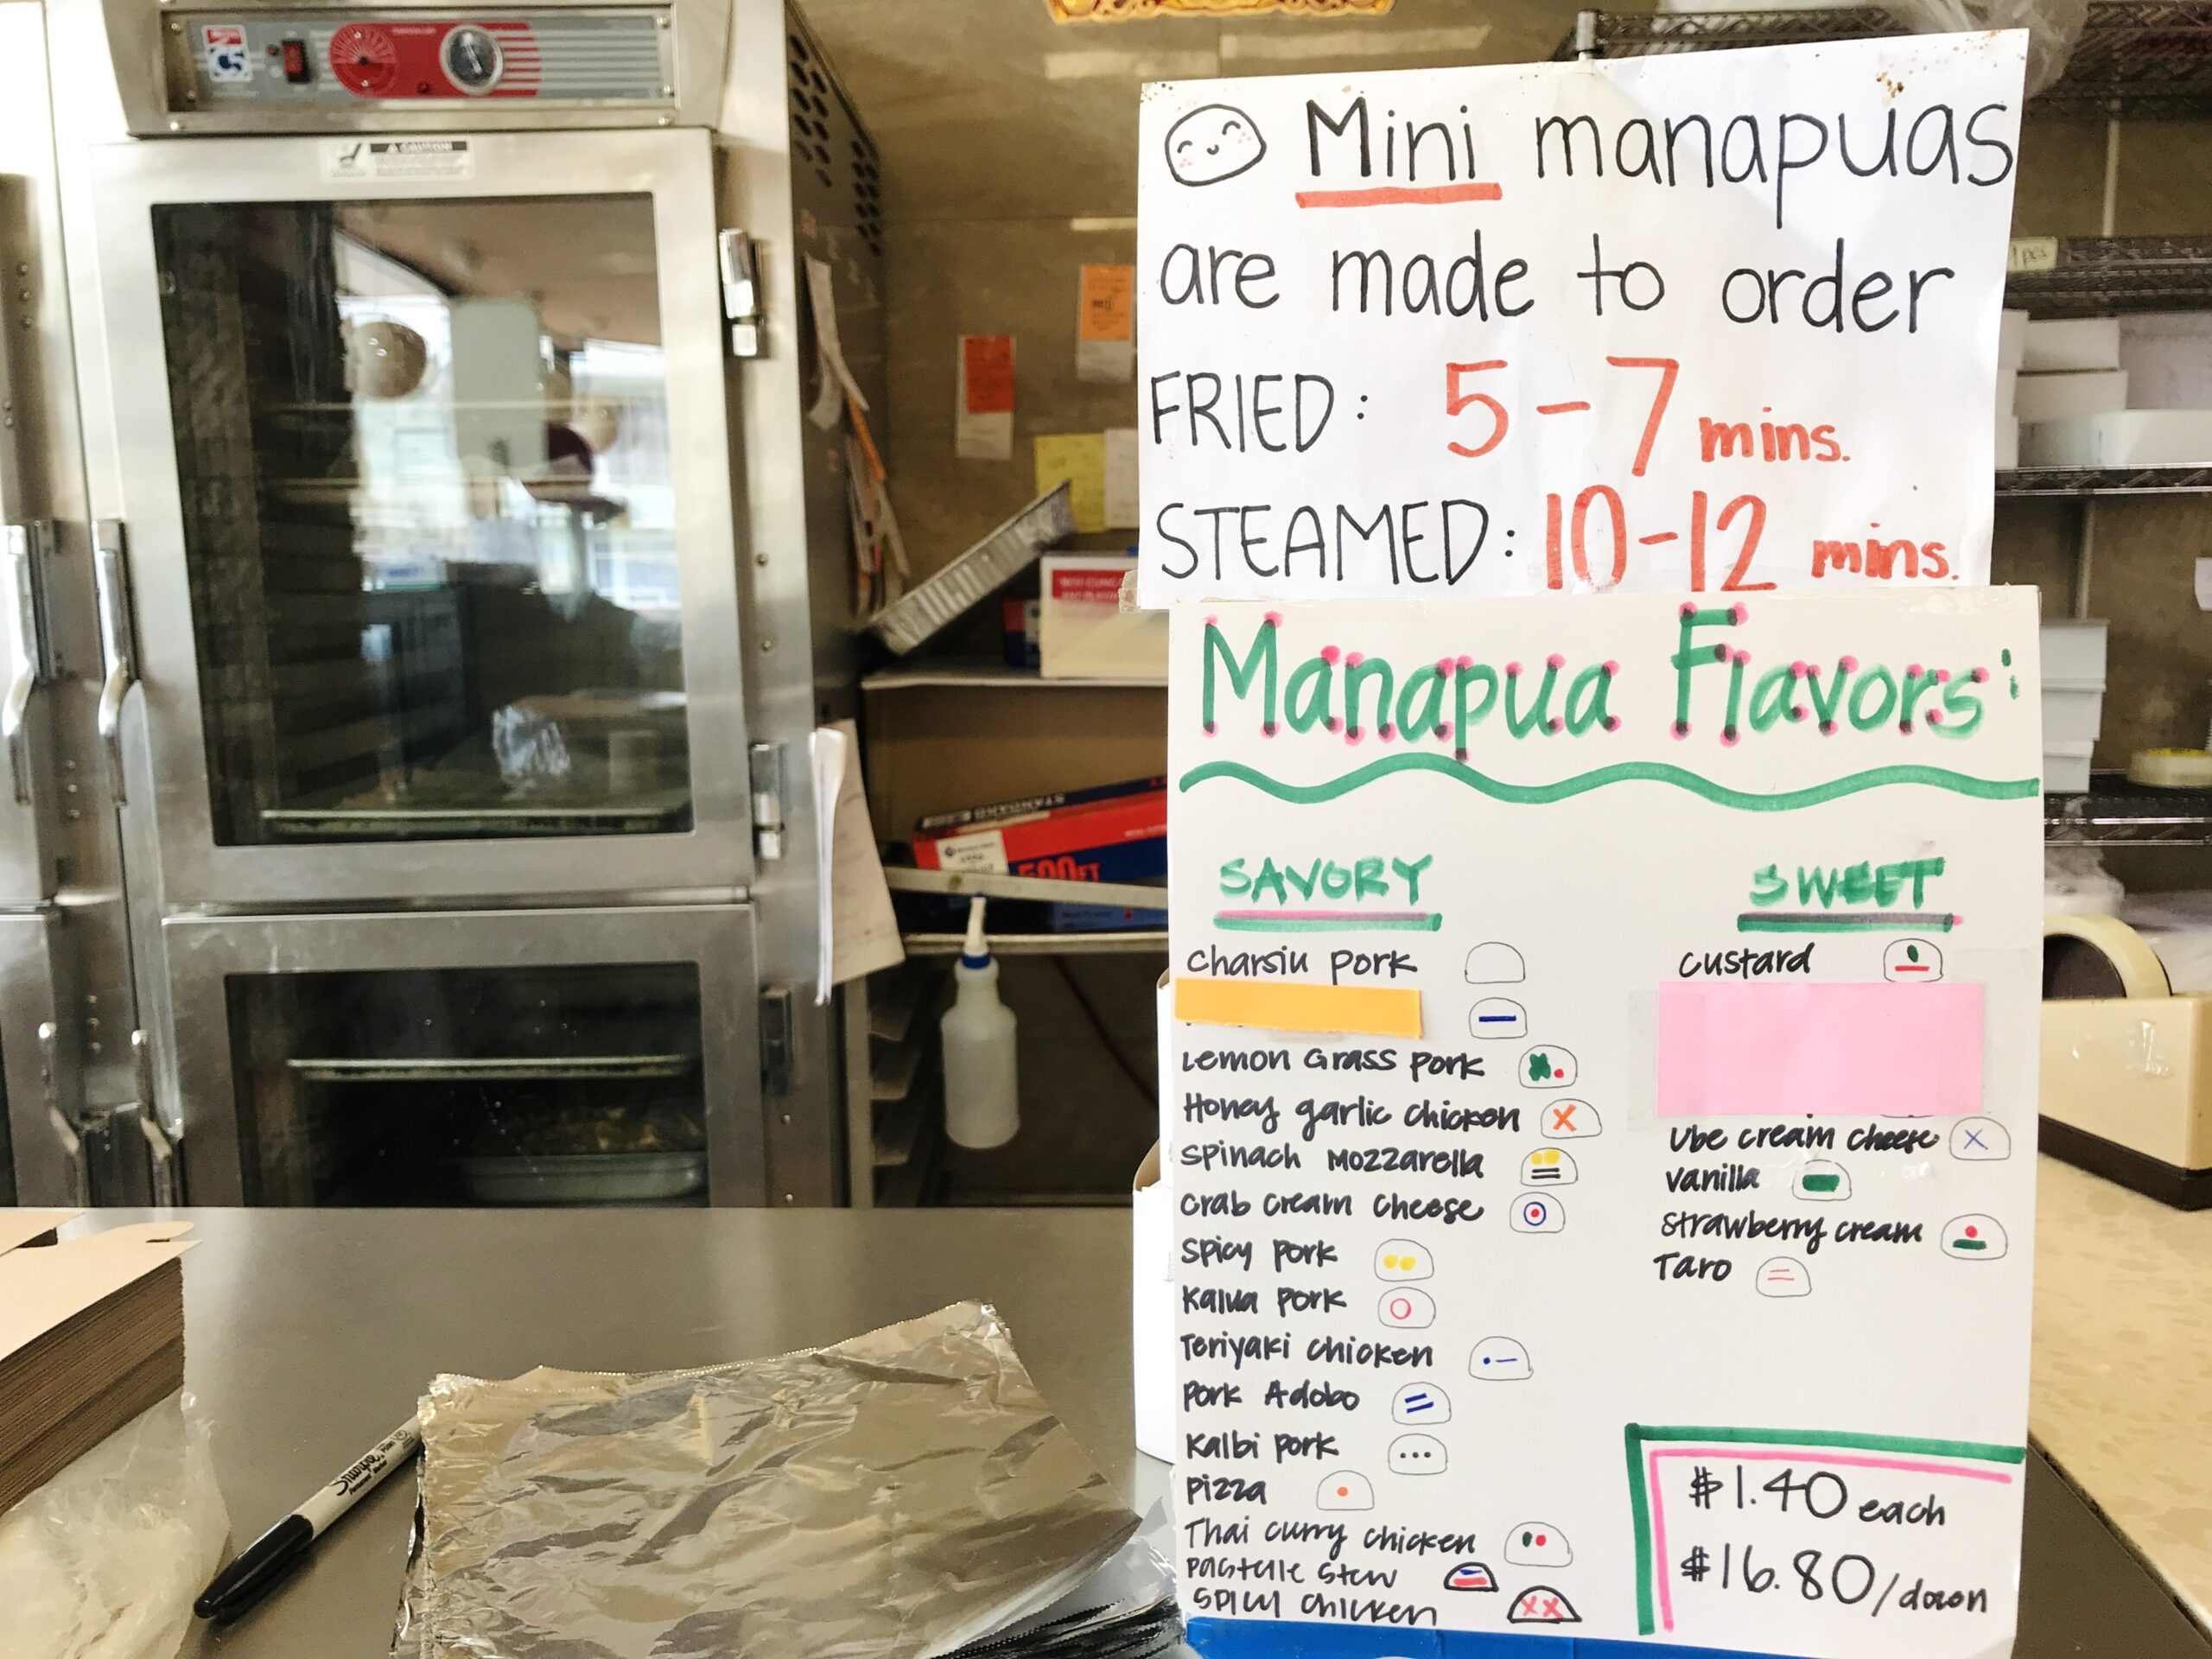 CAUTION
Mini manapuas
are made to order
FRIED: 5-7 mins.
STEAMED: 10-12 mins.
Manapua Flavors:
SAVORY
Charsiu pork
Lemon Grass pork
Honey garlic chicken
Spinach Mozzarella
Crab cream cheese
Spicy pork
Kalua pork
Teriyaki chicken
Pork Adobo
Kalbi pork
Pizza
Thai curry chicken
Pastelle Stew
Spicy chicken
SWEET
custard
Ube cream cheese
vanilla
strawberry cream
Taro
$1.40 each
$16.80/dozen
STANDARD
500FT
Sharpie